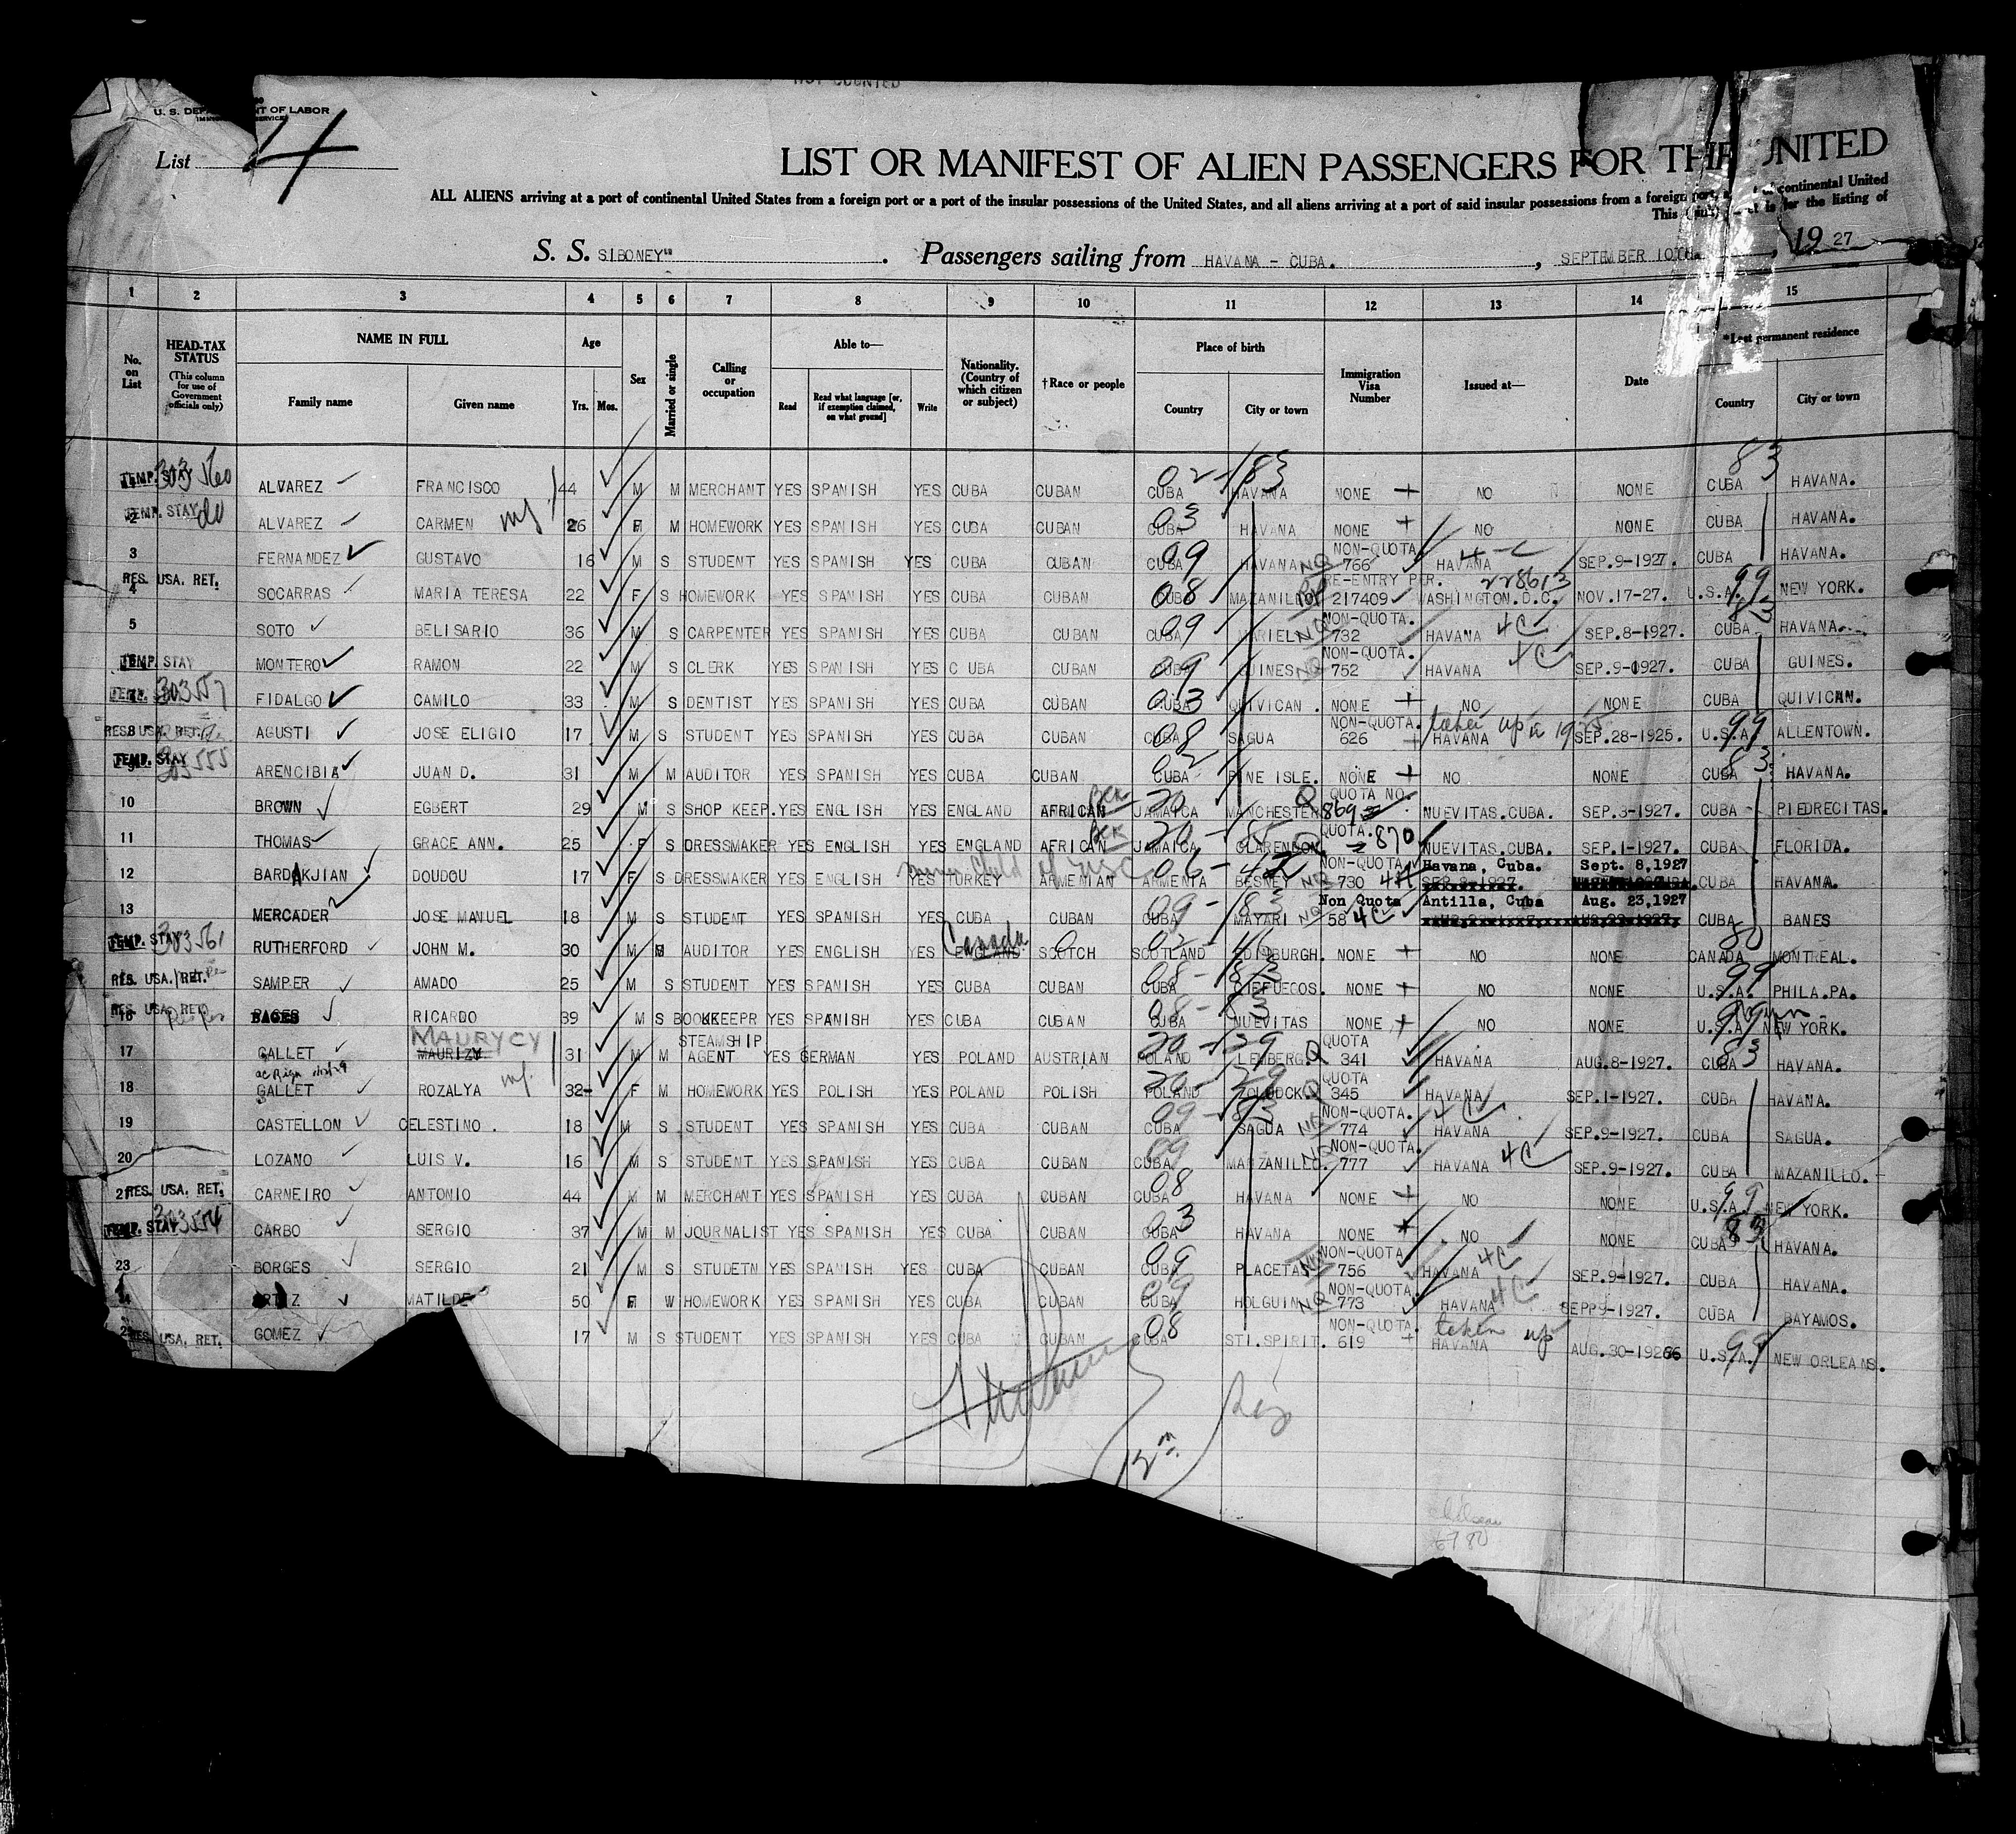 NOT COUNTED
U. S. DEP NT OF LABOR
List 4
LIST OR MANIFEST OF ALIEN PASSENGERS FOR THE UNITED
ALL ALIENS arriving at a port of continental United States from a foreign port or a port of the insular possessions of the United States, and all aliens arriving at a port of said insular possessions from a foreign port continental United
This is for the listing of
S. S. SIBONEY" . Passengers sailing from HAVANA - CUBA. , SEPTEMBER 10TH. , 19 27
1 2 3 4 5 6 7 8 9 10 11 12 13 14 15
No. on List HEAD-TAX STATUS (This column for use of Government officials only) NAME IN FULL Family name Given name Age Yrs. Mos. Sex Married or single Calling or occupation Able to— Read Read what language [or, if exemption claimed, on what ground] Write Nationality. (Country of which citizen or subject) †Race or people Place of birth Country City or town Immigration Visa Number Issued at— Date *Last permanent residence Country City or town
TEMP. STAY 303560 ALVAREZ FRANCISCO 44 M M MERCHANT YES SPANISH YES CUBA CUBAN CUBA HAVANA NONE NO NONE CUBA HAVANA.
2 TEMP. STAY do ALVAREZ CARMEN 26 F M HOMEWORK YES SPANISH YES CUBA CUBAN CUBA HAVANA NONE NO NONE CUBA HAVANA.
3 FERNANDEZ GUSTAVO 16 M S STUDENT YES SPANISH YES CUBA CUBAN CUBA HAVANA NON-QUOTA 766 HAVANA 4-C SEP.9-1927. CUBA HAVANA.
4 RES. USA. RET. SOCARRAS MARIA TERESA 22 F S HOMEWORK YES SPANISH YES CUBA CUBAN CUBA MAZANILLO RE-ENTRY PER. 217409 228613 WASHINGTON.D.C. NOV.17-27. U.S.A. NEW YORK.
5 SOTO BELISARIO 36 M S CARPENTER YES SPANISH YES CUBA CUBAN CUBA MARIEL NON-QUOTA. 732 HAVANA 4C SEP.8-1927. CUBA HAVANA.
TEMP. STAY MONTERO RAMON 22 M S CLERK YES SPANISH YES C UBA CUBAN CUBA GUINES NON-QUOTA. 752 HAVANA 4C SEP.9-1927. CUBA GUINES.
303557 FIDALGO CAMILO 33 M S DENTIST YES SPANISH YES CUBA CUBAN CUBA QUIVICAN . NONE NO NONE CUBA QUIVICAN.
8 RES. USA. RET. AGUSTI JOSE ELIGIO 17 M S STUDENT YES SPANISH YES CUBA CUBAN CUBA SAGUA NON-QUOTA. 626 HAVANA taken up in 1925 SEP.28-1925. U.S.A. ALLENTOWN.
TEMP. STAY 303555 ARENCIBIA JUAN D. 31 M M AUDITOR YES SPANISH YES CUBA CUBAN CUBA PINE ISLE. NONE NO NONE CUBA HAVANA.
10 BROWN EGBERT 29 M S SHOP KEEP. YES ENGLISH YES ENGLAND AFRICAN BCK JAMAICA MANCHESTER QUOTA NO. 869 NUEVITAS.CUBA. SEP.3-1927. CUBA PIEDRECITAS.
11 THOMAS GRACE ANN. 25 F S DRESSMAKER YES ENGLISH YES ENGLAND AFRICAN BCK JAMAICA CLARENDON QUOTA. 870 NUEVITAS.CUBA. SEP.1-1927. CUBA FLORIDA.
12 BARDAKJIAN DOUDOU 17 F S DRESSMAKER YES ENGLISH YES TURKEY ARMENIAN ARMENIA BESNEY NON-QUOTA 730 Havana, Cuba. Sept. 8,1927 CUBA HAVANA.
13 MERCADER JOSE MANUEL 18 M S STUDENT YES SPANISH YES CUBA CUBAN CUBA MAYARI Non Quota 58 4C Antilla, Cuba Aug. 23,1927 CUBA BANES
TEMP. STAY 303561 RUTHERFORD JOHN M. 30 M M AUDITOR YES ENGLISH YES ENGLAND Canada SCOTCH SCOTLAND EDINBURGH. NONE NO NONE CANADA MONTREAL.
RES. USA. RET. SAMPER AMADO 25 M S STUDENT YES SPANISH YES CUBA CUBAN CUBA CIEFUEGOS. NONE NO NONE U.S.A. PHILA.PA.
16 RES. USA. RET. PAGES RICARDO 39 M S BOOKKEEPR YES SPANISH YES CUBA CUBAN CUBA NUEVITAS NONE NO NONE U.S.A. NEW YORK.
17 GALLET MAURIZY MAURYCY 31 M M STEAMSHIP AGENT YES GERMAN YES POLAND AUSTRIAN POLAND LEMBERG. QUOTA 341 HAVANA AUG.8-1927. CUBA HAVANA.
18 GALLET ROZALYA 32 F M HOMEWORK YES POLISH YES POLAND POLISH POLAND QUOTA 345 HAVANA SEP.1-1927. CUBA HAVANA.
19 CASTELLON CELESTINO . 18 M S STUDENT YES SPANISH YES CUBA CUBAN CUBA SAGUA NON-QUOTA. 774 HAVANA 4C SEP.9-1927. CUBA SAGUA.
20 LOZANO LUIS V. 16 M S STUDENT YES SPANISH YES CUBA CUBAN CUBA MANZANILLO. NON-QUOTA. 777 HAVANA 4C SEP.9-1927. CUBA MAZANILLO.
21 RES. USA. RET. CARNEIRO ANTONIO 44 M M MERCHANT YES SPANISH YES CUBA CUBAN CUBA HAVANA NONE NO NONE U.S.A. NEW YORK.
TEMP. STAY 303554 CARBO SERGIO 37 M M JOURNALIST YES SPANISH YES CUBA CUBAN CUBA HAVANA NONE NO NONE CUBA HAVANA.
23 BORGES SERGIO 21 M S STUDETN YES SPANISH YES CUBA CUBAN CUBA PLACETAS NON-QUOTA 756 HAVANA 4C SEP.9-1927. CUBA HAVANA.
MATILDE 50 F W HOMEWORK YES SPANISH YES CUBA CUBAN CUBA HOLGUIN NON-QUOTA 773 HAVANA 4C SEPP9-1927. CUBA BAYAMOS.
25 RES. USA. RET. GOMEZ 17 M S STUDENT YES SPANISH YES CUBA CUBAN CUBA STI.SPIRIT. NON-QUOTA. 619 HAVANA taken up AUG.30-1926 U.S.A. NEW ORLEANS.